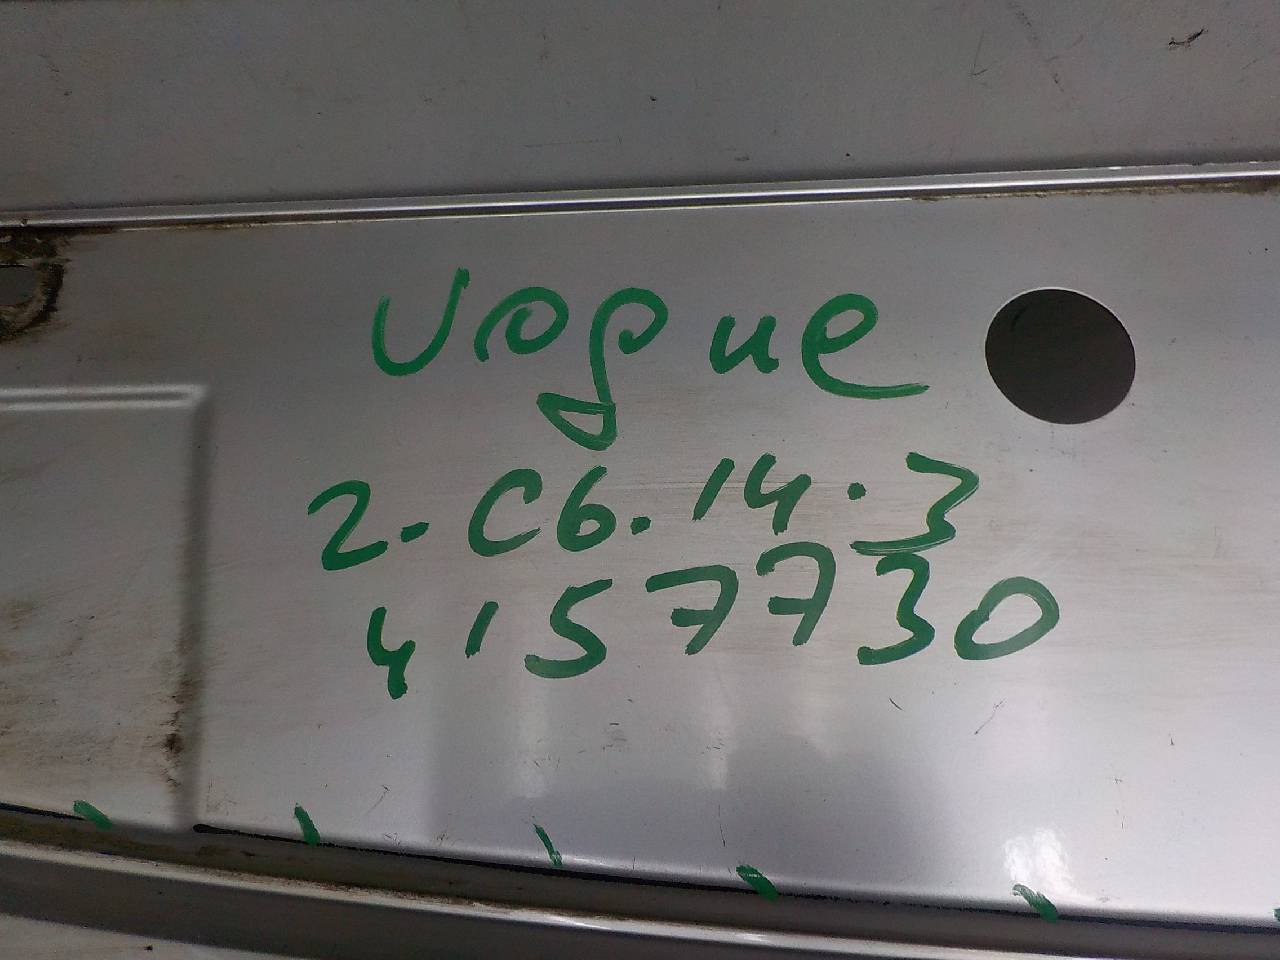 Vogue
2-C6.14.3
4157730